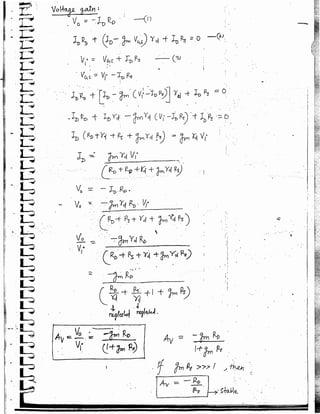 Voltage gain:
V₀ = - I_D R_D —(1)
I_D R_D + (I_D - g_m V_GS) r_d + I_D R_S = 0
V_i = V_GS + I_D R_S
V_GS = V_i - I_D R_S
I_D R_D + [I_D - g_m (V_i - I_D R_S)] r_d + I_D R_S = 0
I_D R_D + I_D r_d - g_m r_d (V_i - I_D R_S) + I_D R_S = 0
I_D (R_D + r_d + R_S + g_m r_d R_S) = g_m r_d V_i
I_D = g_m r_d V_i
(R_D + R_S + r_d + g_m r_d R_S)
V₀ = - I_D R_D.
V₀ = - g_m r_d R_D . V_i
(R_D + R_S + r_d + g_m r_d R_S)
V₀ / V_i = - g_m r_d R_D
(R_D + R_S + r_d + g_m r_d R_S)
= - g_m R_D
(R_D / r_d + R_S / r_d + 1 + g_m R_S)
↓ ↓
neglected neglected.
A_V = V₀ / V_i = - g_m R_D / (1 + g_m R_S)
A_V = - g_m R_D / 1 + g_m R_S
If g_m R_S >>> 1, then
A_V = - R_D / R_S → stable